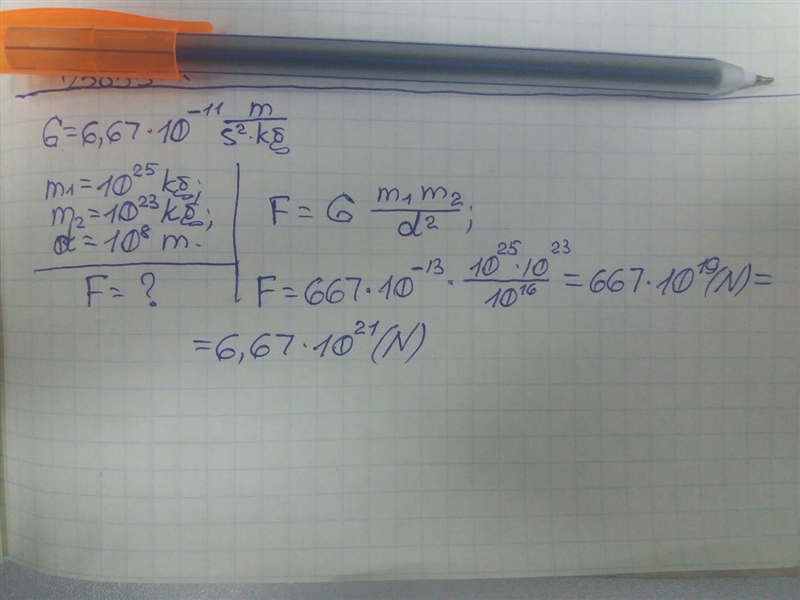 G=6,67·10⁻¹¹ m/s²·kg
m₁=10²⁵ kg;
m₂=10²³ kg;
d=10⁸ m.
F=?
F=G m₁m₂/d²;
F=667·10⁻¹³·10²⁵·10²³/10¹⁶=667·10¹⁹(N)=
=6,67·10²¹(N)